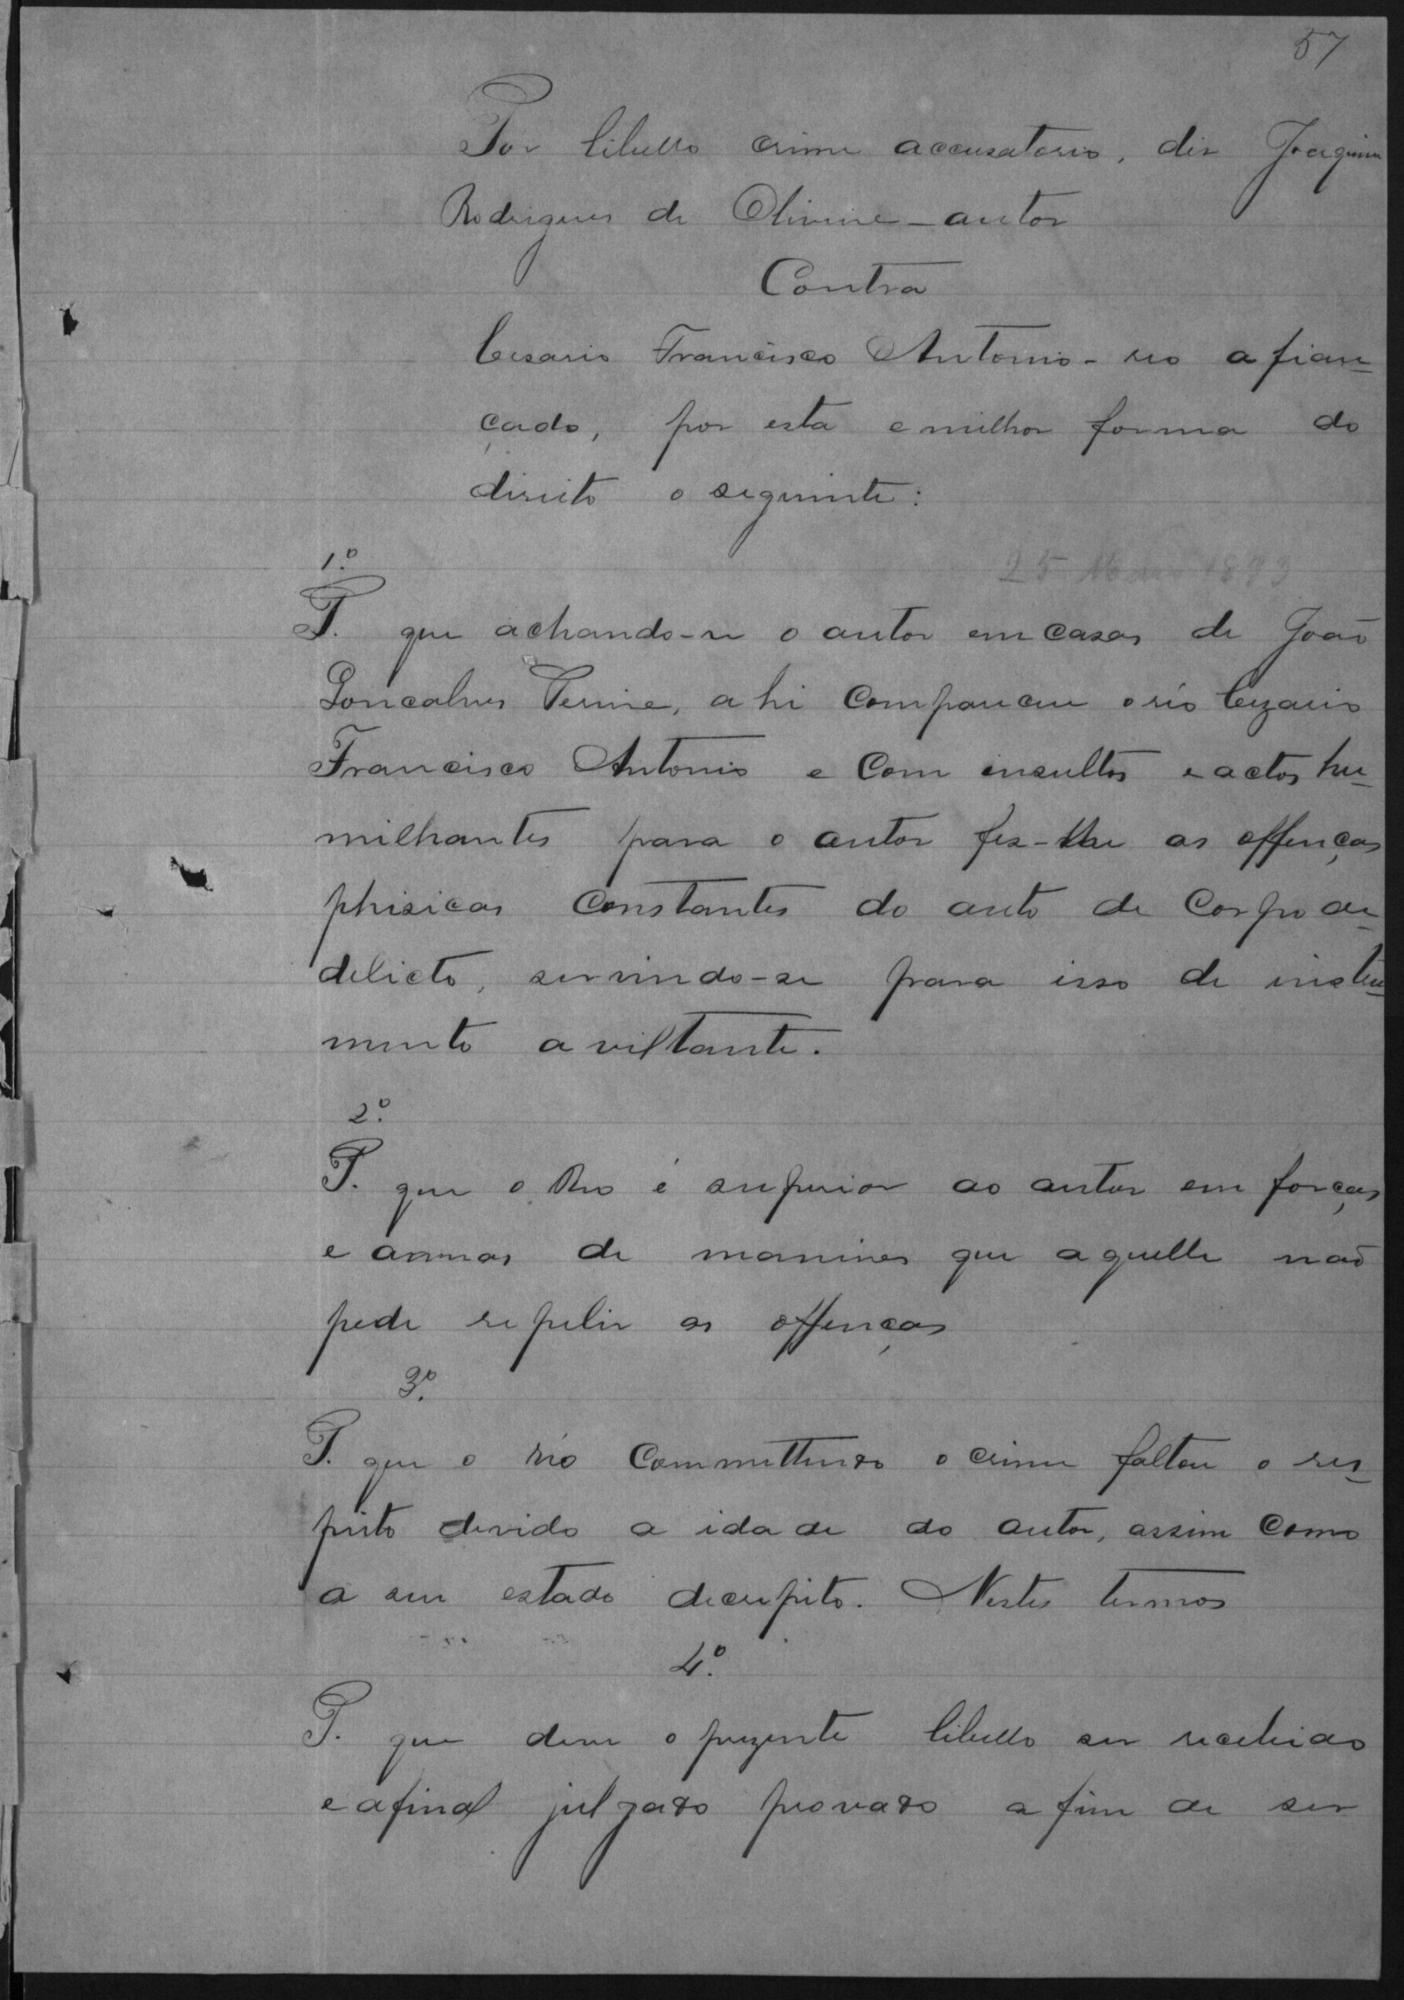 57
Por libello crime accusatorio, diz Joaquim
Rodrigues de Oliveira - autor
Contra
Cesario Francisco Antonio - reo afian-
çado, por esta e milhor forma do
direito o seguinte:
1º
25 1893
P. que achando-se o autor em casas de João
Gonçalves, ahi compareceu o réo Cezario
Francisco Antonio e com insultos e actos hu-
milhantes para o autor fez-lhe as offenças
phisicas constantes do auto de corpo de
delicto, servindo-se para isso de instru-
mento aviltante.
2º
P. que o Reo é superior ao autor em forças
e armas de maneira que aquelle não
pode repelir as offenças
3º
P. que o réo committendo o crime faltou o res-
peito devido a idade do autor, assim como
a seu estado decrepito. Nestes termos
4º
P. que deve o prezente libello ser recebido
e afinal julgado provado a fim de ser